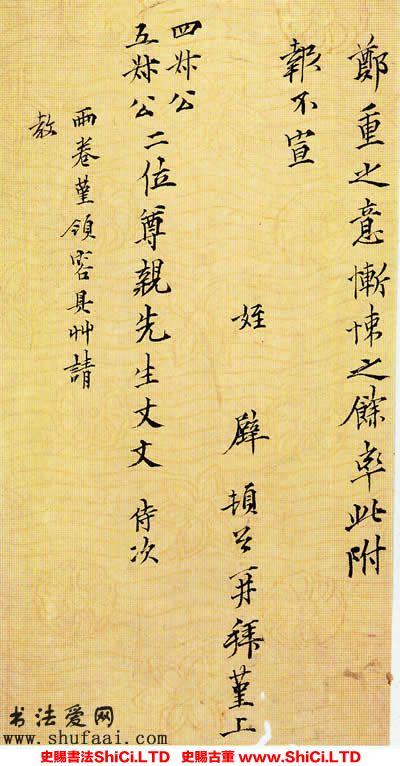 鄭重之意慚悚之餘率此附
報不宣
姪 頓首再拜堇上
四叔公
五叔公二位尊親先生丈丈 侍次
兩卷堇領容具艸請
教
书法爱网
www.shufaai.com
史賜書法ShiCi.LTD 史賜古董 www.ShiCi.LTD